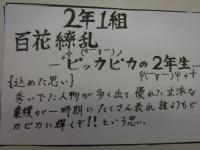 2年1組
百花繚乱
－ピッカピカの2年生－
{込めた思い}
秀いでた人物が多く出て優れた立派な
業績が一時期にたくさん表れ誰よりもピ
カピカに輝くぞ!!という思い。